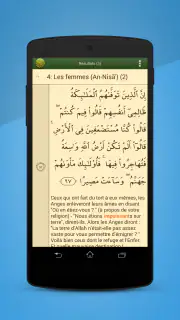 Résultats (5)
4: Les femmes (An-Nisâ') (2)
إِنَّ الَّذِينَ تَوَفَّىٰهُمُ الْمَلَـٰٓئِكَةُ
ظَالِمِىٓ أَنفُسِهِمْ قَالُوا۟ فِيمَ كُنتُمْ ۖ
قَالُوا۟ كُنَّا مُسْتَضْعَفِينَ فِى ٱلْأَرْضِ ۚ
قَالُوٓا۟ أَلَمْ تَكُنْ أَرْضُ ٱللَّهِ وَٰسِعَةً
فَتُهَاجِرُوا۟ فِيهَا ۚ فَأُو۟لَـٰٓئِكَ مَأْوَىٰهُمْ
جَهَنَّمُ ۖ وَسَآءَتْ مَصِيرًا ٩٧
Ceux qui ont fait du tort à eux mêmes, les
Anges enlèveront leurs âmes en disant:
"Où en étiez-vous ? " (à propos de votre
religion) - "Nous étions impuissants sur
terre", dirent-ils. Alors les Anges diront:
"La terre d'Allah n'était-elle pas assez
vaste pour vous permettre d'émigrer ? "
Voilà bien ceux dont le refuge est l'Enfer.